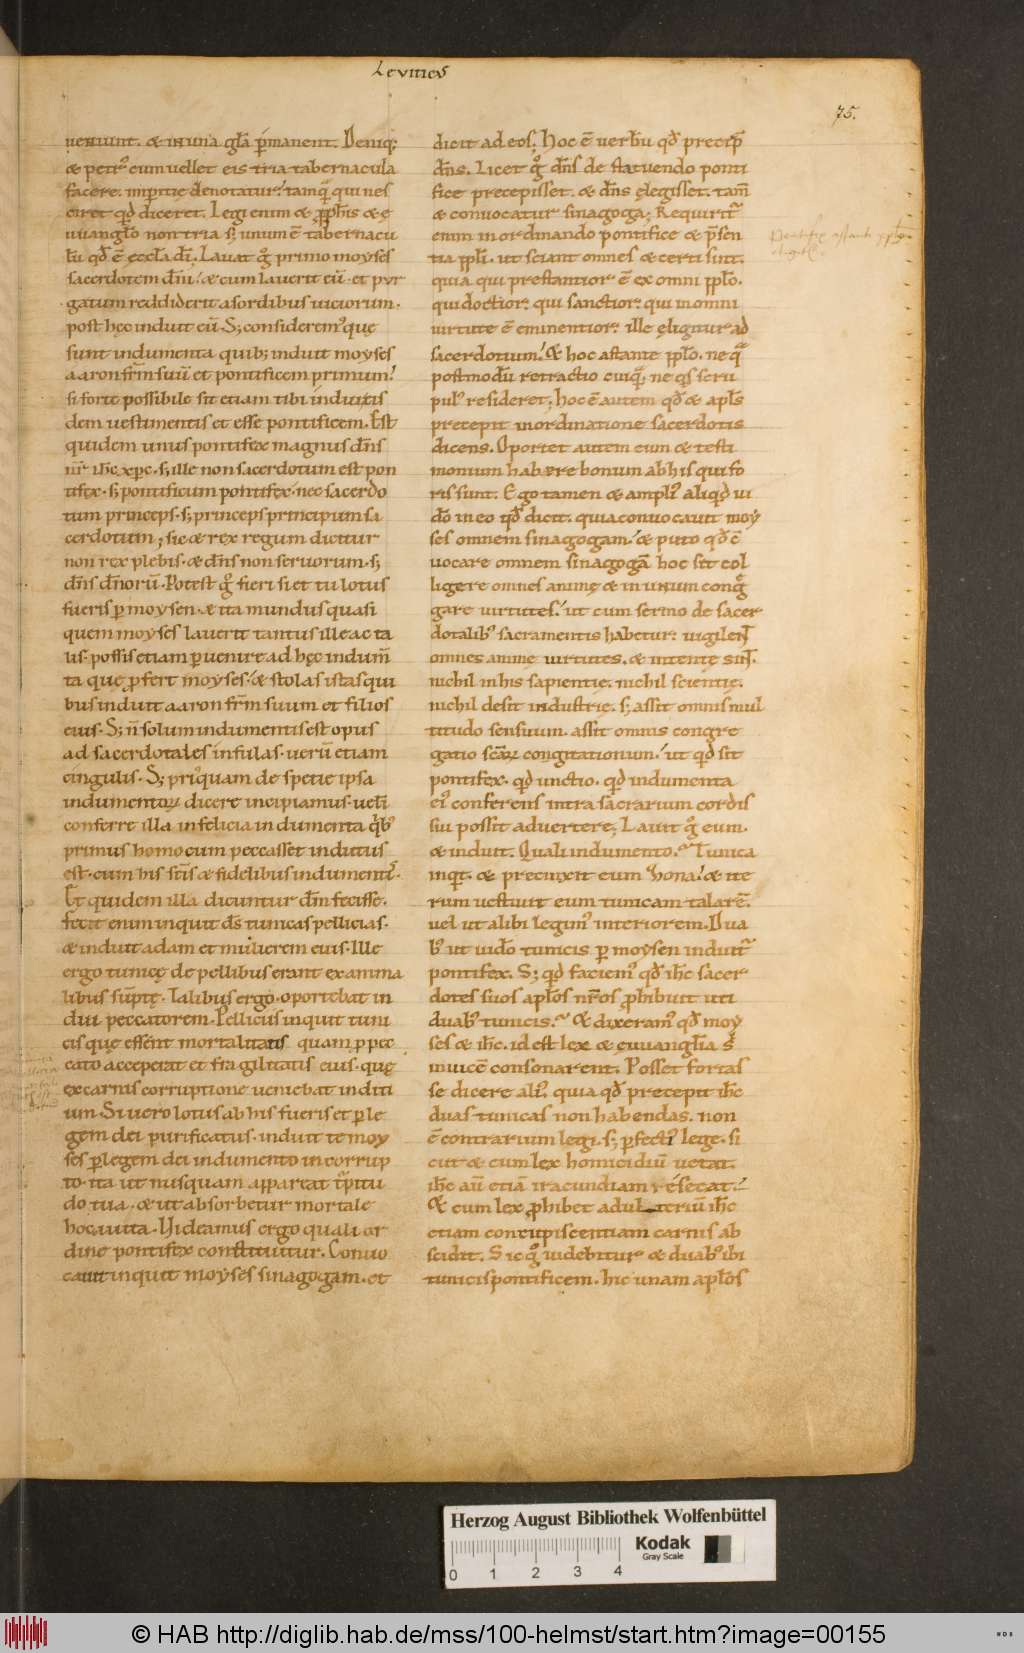 Leviticus
75.
ueniunt. & in una gla̅ p̅manent. Deniq;
& petr᷒ cum uellet eis tria tabernacula
facere. imperitię denotatur. tamqua̅ qui nes
ciret qd̅ diceret. Legi enim & p̅phis & ę
uuanglo̅ non tria s; unum e̅ tabernacu
lu̅ qd̅ e̅ eccla̅ di̅. Lauat g̊ primo moyses
sacerdotem dn̅i. & cum lauerit eu̅. et pur
gatum reddiderit a sordibus uiciorum.
post hęc induit eu̅. S; considerem᷒ quę
sunt indumenta quib; induit moyses
aaron frm̅ suu̅ et pontificem primum.
si forte possibile sit etiam tibi indui eis
dem uestimentis et esse pontificem. Est
quidem unus pontifex magnus dn̅s
nr̅ ihc̅ xpc̅. s; ille non sacerdotum est pon
tifex. s; pontificum pontifex. nec sacerdo
tum princeps. s; princeps principum sa
cerdotum; sic & rex regum dicitur
non rex plebis. & dn̅s non seruorum. s;
dn̅s dn̅oru̅. Potest g̊ fieri si et tu lotus
fueris p̲ moysen. & ita mundus quasi
quem moyses lauerit tantus ille ac ta
lis. possis etiam p̲uenire ad hęc indum̅
ta quę p̲fert moyses. & stolas istas qui
bus induit aaron frm̅ suum et filios
eius. S; n̅ solum indumentis est opus
ad sacerdotales infulas. ueru̅ etiam
cingulis. S; pri᷒quam de specie ipsa
indumentoꝝ dicere incipiamus. ueli̅
conferre illa infelicia indumenta qib᷒
primus homo cum peccasset indutus
est. cum his sc̅is & fidelibus indumentis.
Et quidem illa dicuntur dm̅ fecisse.
fecit enim inquit ds̅ tunicas pellicias.
& induit adam et mulierem eius. Ille
ergo tunicę de pellibus erant ex anima
libus su̅ptę. Talibus ergo oportebat in
dui peccatorem. Pellicius inquit tuni
cis quę essent mortalitatis quam p̲ pec
cato acceperat et fragilitatis eius. quę
ex carnis corruptione ueniebat inditi
um. Si uero lotus ab his fueris et p̲ le
gem dei purificatus. induit te moy
ses p̲ legem dei indumento incorrup
to. ita ut nusquam appareat turpitu
do tua. & ut absorbetur mortale
hoc a uita. Videamus ergo quali or
dine pontifex constituitur. Conuo
cauit inquit moyses sinagogam. et
dicit ad eos. Hoc e̅ uerbu̅ qd̅ precip̅
dn̅s. Licet g̊ dn̅s de statuendo ponti
fice precepisset. & dn̅s ęlegisset. tam̅
& conuocatur sinagoga; Requirit᷒
enim in ordinando pontifice & p̅sen
tia ppli̅. ut sciant omnes & certi sint.
quia qui prestantior e̅ ex omni pplo̅.
qui doctior. qui sanctior. qui in omni
uirtute e̅ eminentior. ille ęligitur ad
sacerdotium. & hoc astante pplo̅. ne qa̅
postmodu̅ retractio cuiqua̅. ne qis scru
pul᷒ resideret. hoc e̅ autem qd̅ & apls̅
precepit in ordinatione sacerdotis
dicens. Oportet autem eum & testi
monium habere bonum ab his qui fo
ris sunt. Ego tamen & ampli᷒ aliqd̅ ui
do̅ in eo qd̅ dicit. quia conuocauit moy
ses omnem sinagogam. & puto qd̅ e̅
uocare omnem sinagoga̅ hoc sit col
ligere omnes animę & in unum cong̅
gare uirtutes. ut cum sermo de sacer
dotalib᷒ sacramentis habetur. uigilen̅t
omnes animę uirtutes. & intentę sin̅t.
nichil in his sapientię. nichil scientię.
nichil desit industrię. s; assit omnis mul
titudo sensuum. assit omnis congre
gatio sca̅ꝝ congitationum. ut qd̅ sit
pontifex. qd̅ unctio. qd̅ indumenta
ei᷒ conferens intra sacrarium cordis
sui possit aduertere; Lauit g̊ eum.
& induit. Quali indumento. Tunica
inqt̅. & precinxit eum zona. & ite
rum uestiuit eum tunicam talare̅.
uel ut alibi legim᷒ interiorem. Dua
b᷒ ut uideo tunicis p̲ moysen induit᷒
pontifex. S; qd̅ faciem᷒ qd̅ ihc̅ sacer
dotes suos aplo̅s nr̅os p̲hibuit uti
duab᷒ tunicis. & dixeram᷒ qd̅ moy
ses & ihc̅. id est lex & euuanglia s̅
inuice̅ consonarent. Posset fortas
se dicere ali᷒. quia qd̅ precepit ihc̅
duas tunicas non habendas. non
e̅ contrarium legi. s; p̲fecti᷒ lege. si
cut & cum lex homicidiu̅ uetat.
ihc̅ au̅ etia̅ iracundiam resecat.
& cum lex p̲hibet adulteriu̅ ihc̅
etiam concupiscentiam carnis ab
scidit. Sic g̊ uidebitur & duab᷒ ibi
tunicis pontificem. hic unam aplo̅s
Herzog August Bibliothek Wolfenbüttel
0 1 2 3 4
Kodak
Gray Scale
© HAB http://diglib.hab.de/mss/100-helmst/start.htm?image=00155